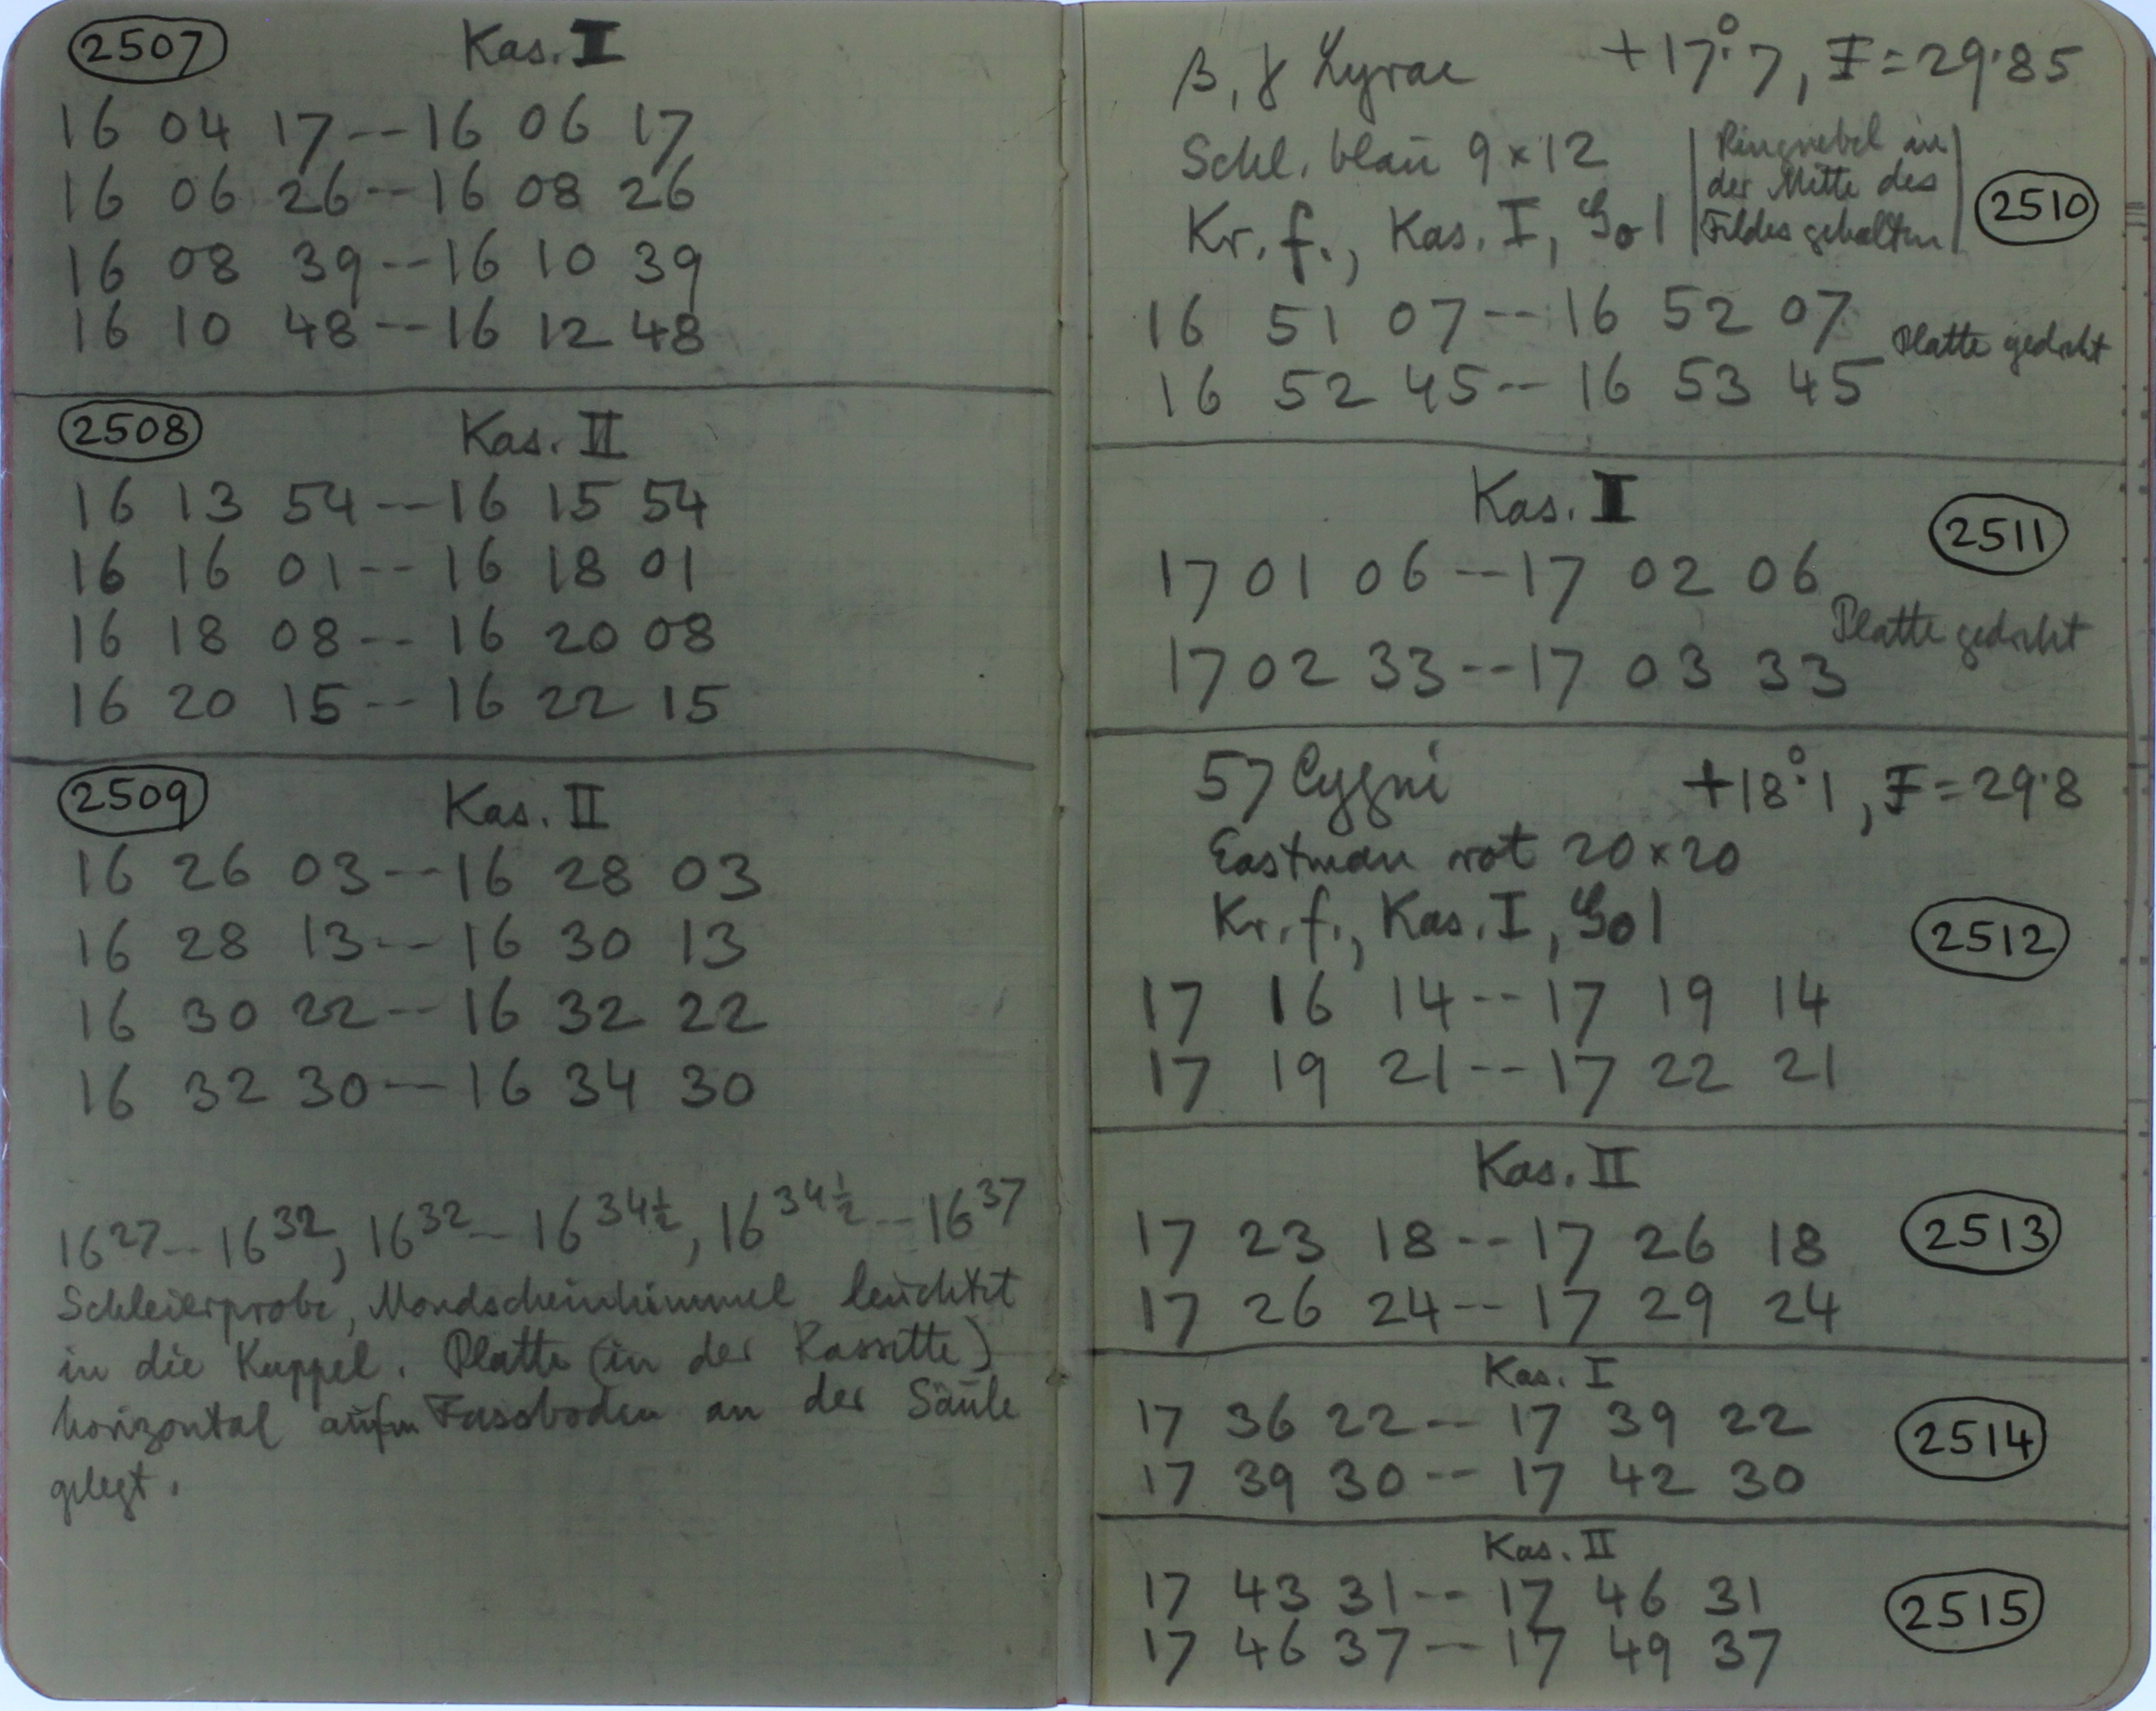 2507 Kas. I
16 04 17 -- 16 06 17
16 06 26 -- 16 08 26
16 08 39 -- 16 10 39
16 10 48 -- 16 12 48
2508 Kas. II
16 13 54 -- 16 15 54
16 16 01 -- 16 18 01
16 18 08 -- 16 20 08
16 20 15 -- 16 22 15
2509 Kas. II
16 26 03 -- 16 28 03
16 28 13 -- 16 30 13
16 30 22 -- 16 32 22
16 32 30 -- 16 34 30
16 27 -- 16 32, 16 32 -- 16 34½, 16 34½ -- 16 37
Schleierprobe, Mondscheinhimmel leuchtet
in die Kuppel. Platte (in der Kassette)
horizontal aufm Fussboden an der Säule
gelegt.
β, γ Lyrae +17°.7, F=29.85
Schl. blau 9×12
Kr. f., Kas. I,
Ringnebel in
der Mitte des
Feldes gehalten
2510
16 51 07 -- 16 52 07
Platte gedreht
16 52 45 -- 16 53 45
Kas. I
2511
17 01 06 -- 17 02 06
Platte gedreht
17 02 33 -- 17 03 33
57 Cygni +18°.1, F=29.8
Eastman rot 20×20
Kr. f., Kas. I,
2512
17 16 14 -- 17 19 14
17 19 21 -- 17 22 21
Kas. II
17 23 18 -- 17 26 18
2513
17 26 24 -- 17 29 24
Kas. I
17 36 22 -- 17 39 22
2514
17 39 30 -- 17 42 30
Kas. II
17 43 31 -- 17 46 31
2515
17 46 37 -- 17 49 37